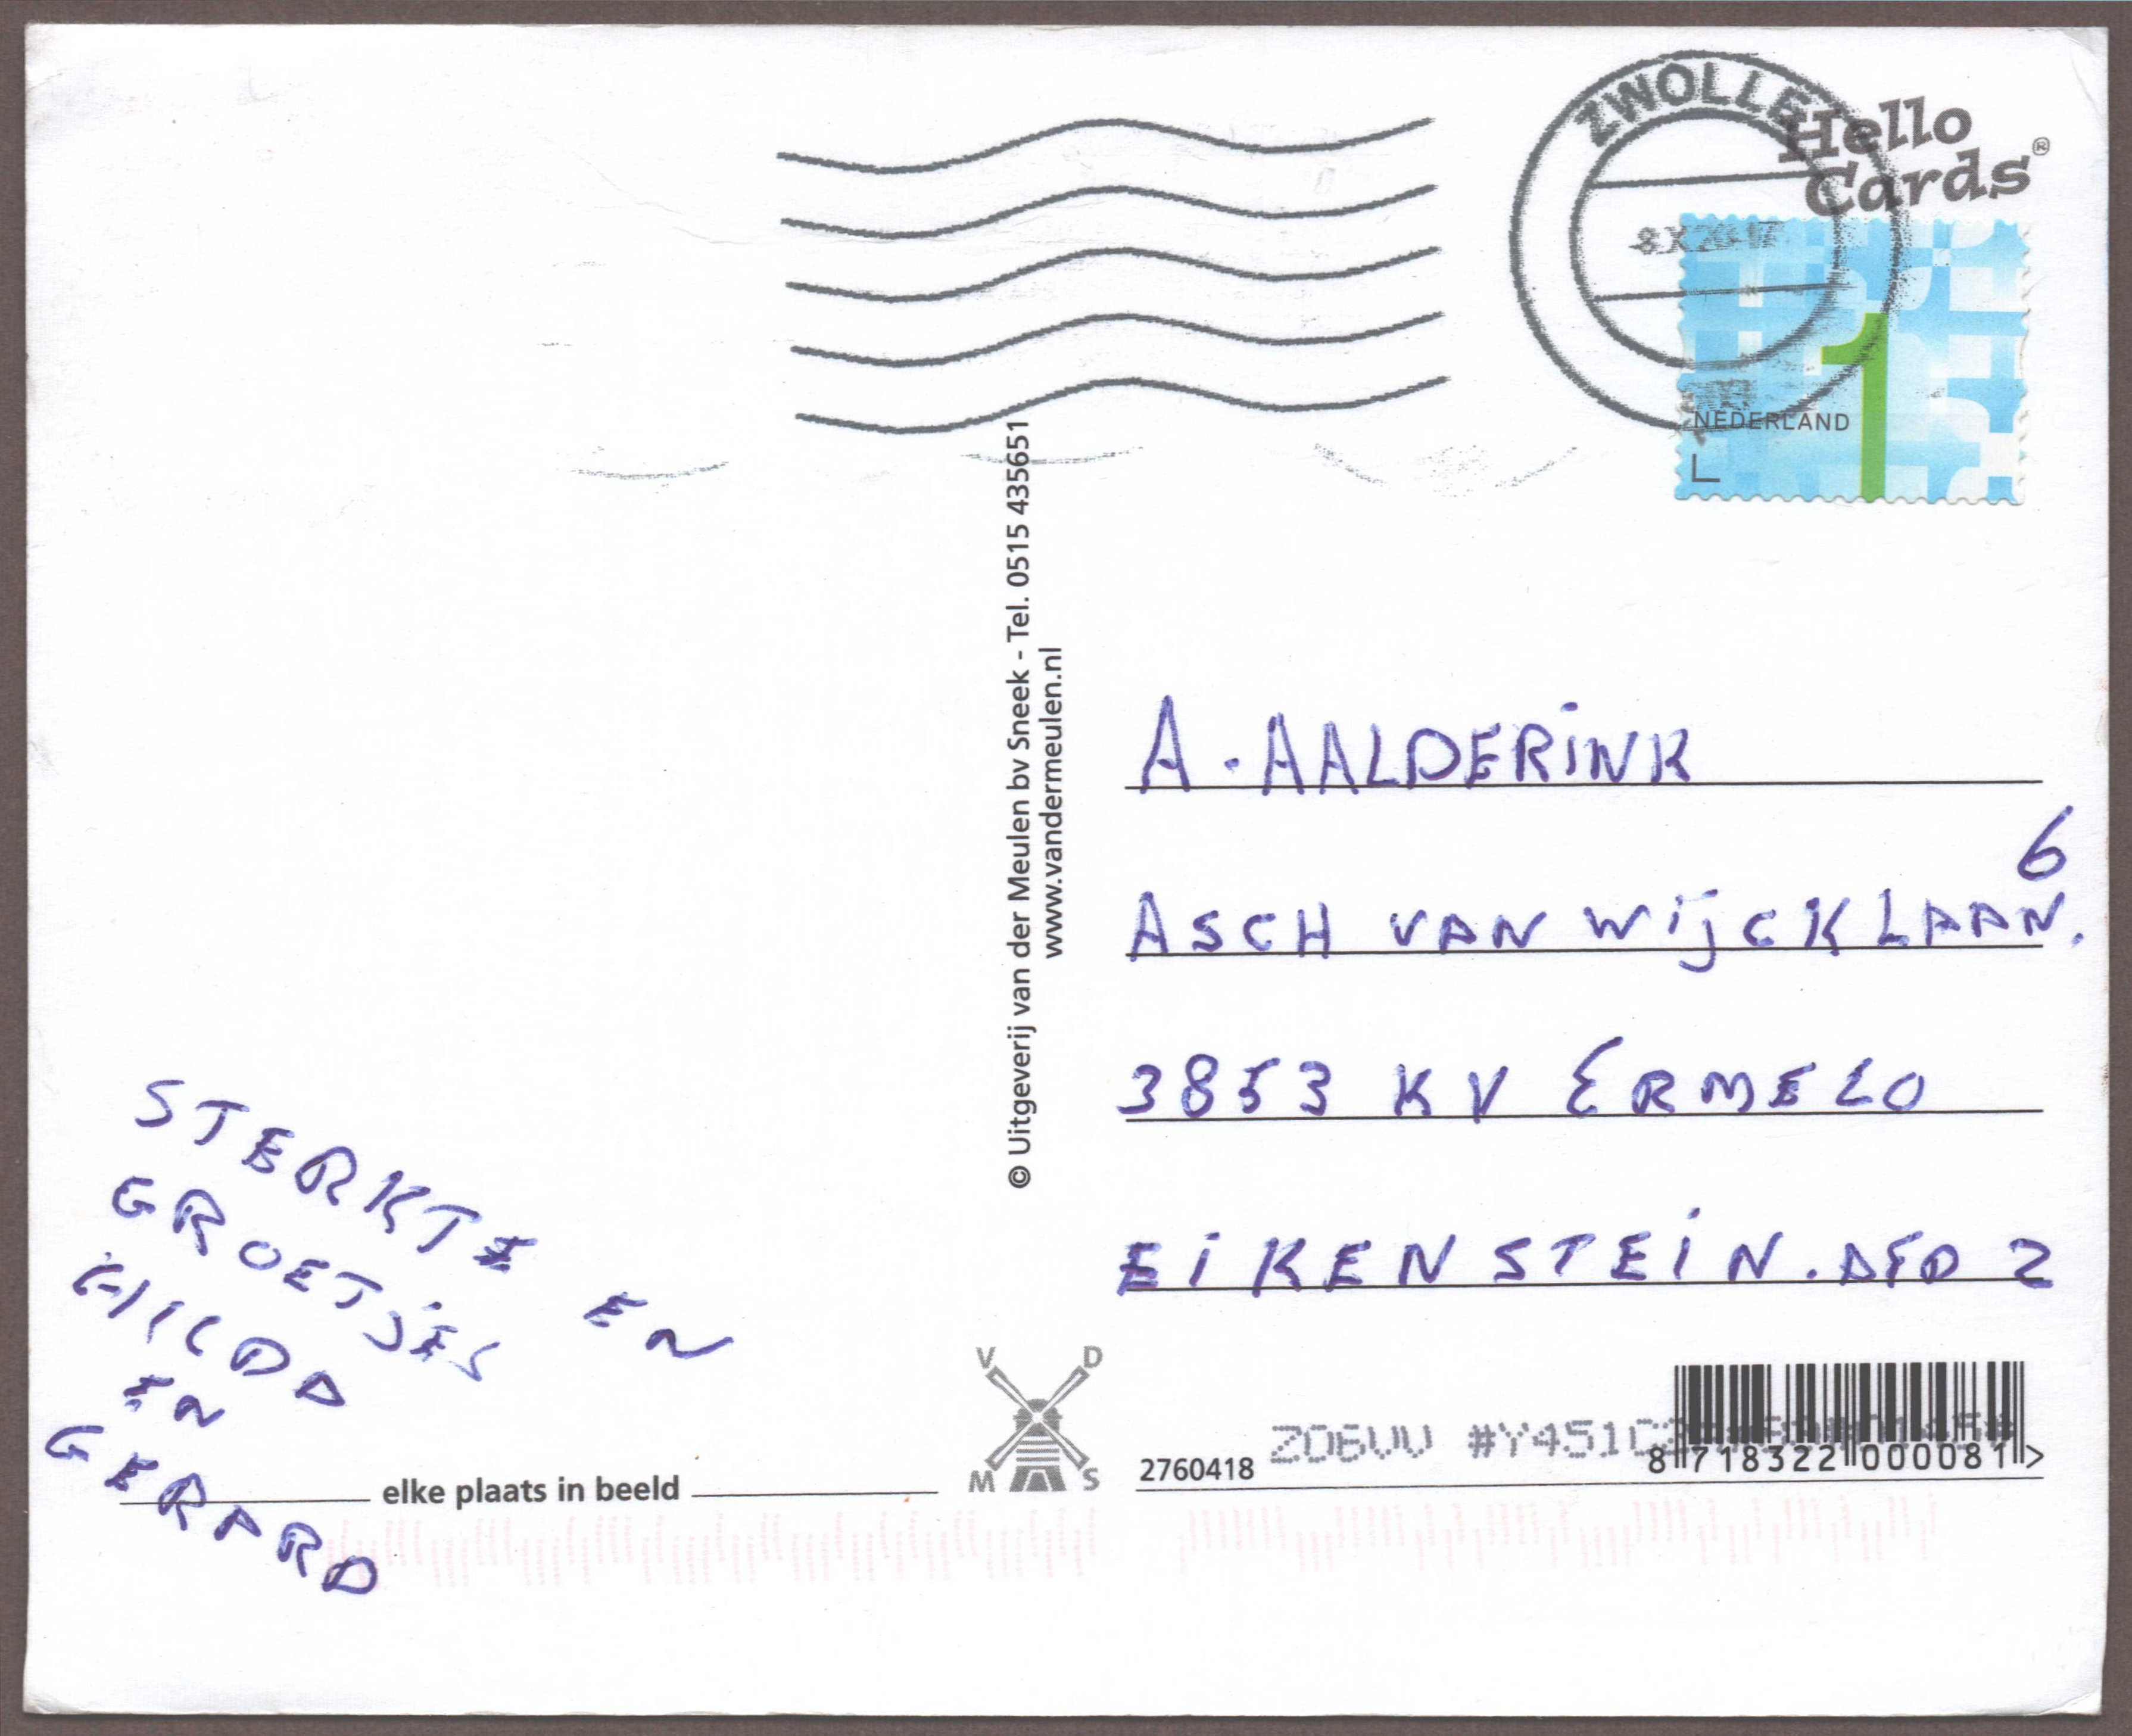 ZWOLLE
Hello
Cards®
8 X 20 17
1
NEDERLAND
© Uitgeverij van der Meulen bv Sneek - Tel. 0515 435651
www.vandermeulen.nl
A. AALDERINK
6
ASCH VAN WIJCKLAAN.
3853 KV ERMELO
EIKENSTEIN. AFD 2
STERKTE EN
GROETJES
HILDA
EN
GERARD
elke plaats in beeld
V D
M S
2760418
8 718322 000081 >